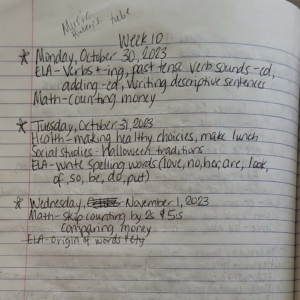 Music
tube
Week 10
* Monday, October 30, 2023
ELA - Verbs + -ing, past tense verb sounds -ed,
adding -ed, writing descriptive sentences
Math - counting money
* Tuesday, October 31, 2023
Health - making healthy choices, make lunch
Social Studies - Halloween traditions
ELA - Write spelling words (love, no, her, are, look,
of, so, be, do, put)
* Wednesday, November 1, 2023
Math - Skip counting by 2s & 5s
comparing money
ELA - Origin of words